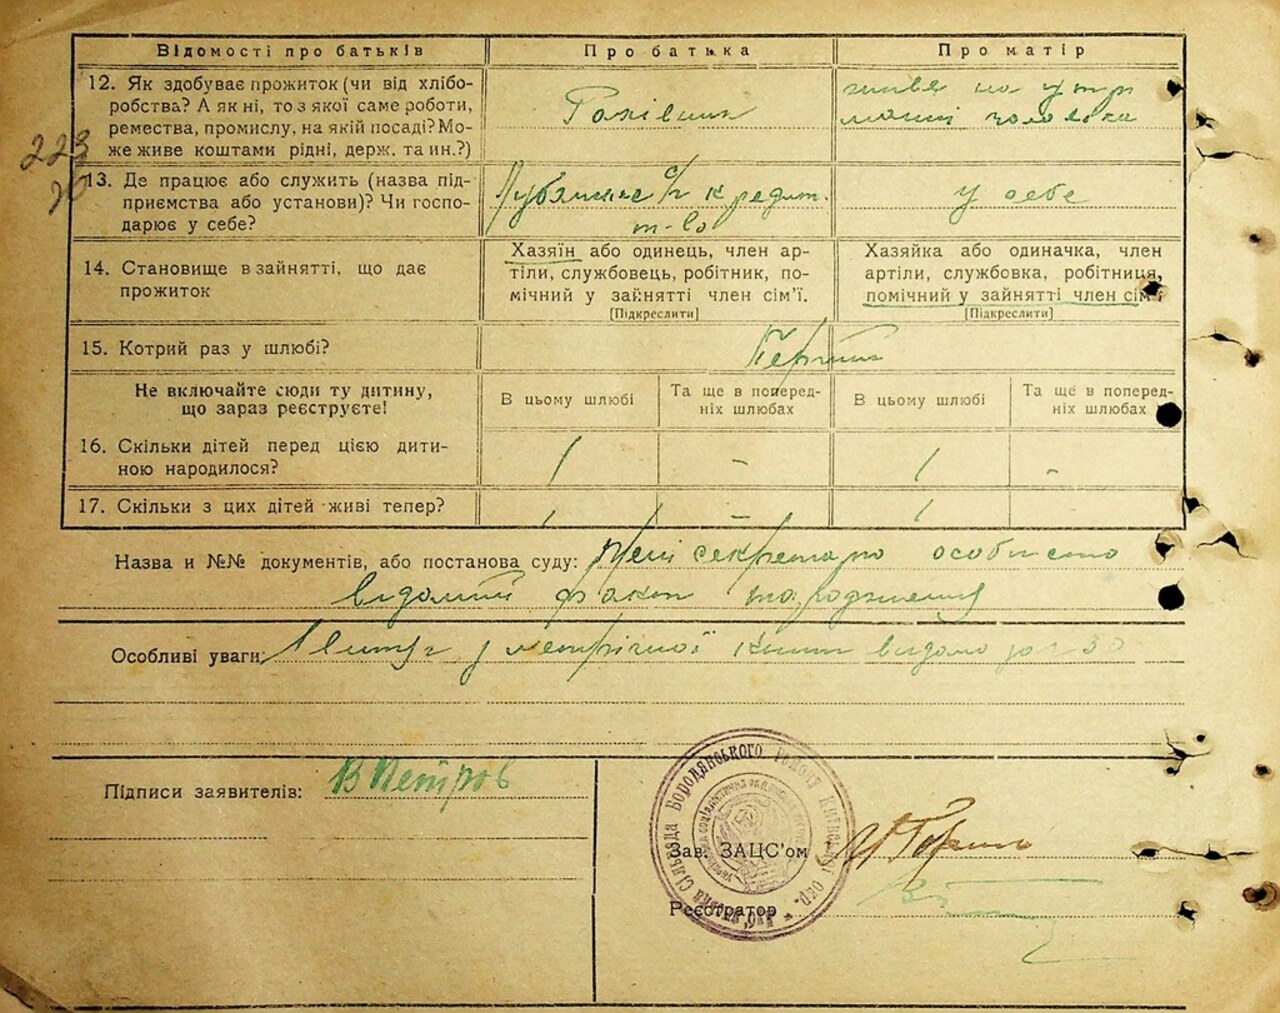 Відомості про батьків
Про батька
Про матір
12. Як здобуває прожиток (чи від хлібо-
робства? А як ні, то з якої саме роботи,
ремества, промислу, на якій посаді? Мо-
же живе коштами рідні, держ. та ин.?)
живе на утри
манні чоловіка
223
70
13. Де працює або служить (назва під-
приємства або установи)? Чи госпо-
дарює у себе?
с/г кредит.
т-во
у себе
14. Становище в зайнятті, що дає
прожиток
Хазяїн або одинець, член ар-
тіли, службовець, робітник, по-
мічний у зайнятті член сім'ї.
[Підкреслити]
Хазяйка або одиначка, член
артіли, службовка, робітниця,
помічний у зайнятті член сім'ї
[Підкреслити]
15. Котрий раз у шлюбі?
Перший
Не включайте сюди ту дитину,
що зараз реєструєте!
В цьому шлюбі
Та ще в поперед-
ніх шлюбах
В цьому шлюбі
Та ще в поперед-
ніх шлюбах
16. Скільки дітей перед цією дити-
ною народилося?
1
-
1
-
17. Скільки з цих дітей живі тепер?
1
-
1
Назва и №№ документів, або постанова суду: мені секретарю особисто
відомий факт народження
Особливі уваги: Витяг з метричної книги видано за № 30
Підписи заявителів: В Петров
сільрада Бородянського району Київської окр.
Зав. ЗАЦС'ом
Реєстратор